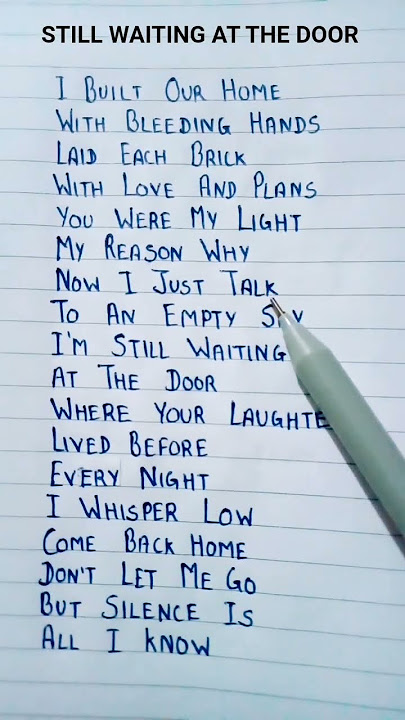 STILL WAITING AT THE DOOR
I BUILT OUR HOME
WITH BLEEDING HANDS
LAID EACH BRICK
WITH LOVE AND PLANS
YOU WERE MY LIGHT
MY REASON WHY
NOW I JUST TALK
TO AN EMPTY
I'M STILL WAITING
AT THE DOOR
WHERE YOUR
LIVED BEFORE
EVERY NIGHT
I WHISPER LOW
COME BACK HOME
DON'T LET ME GO
BUT SILENCE IS
ALL I KNOW